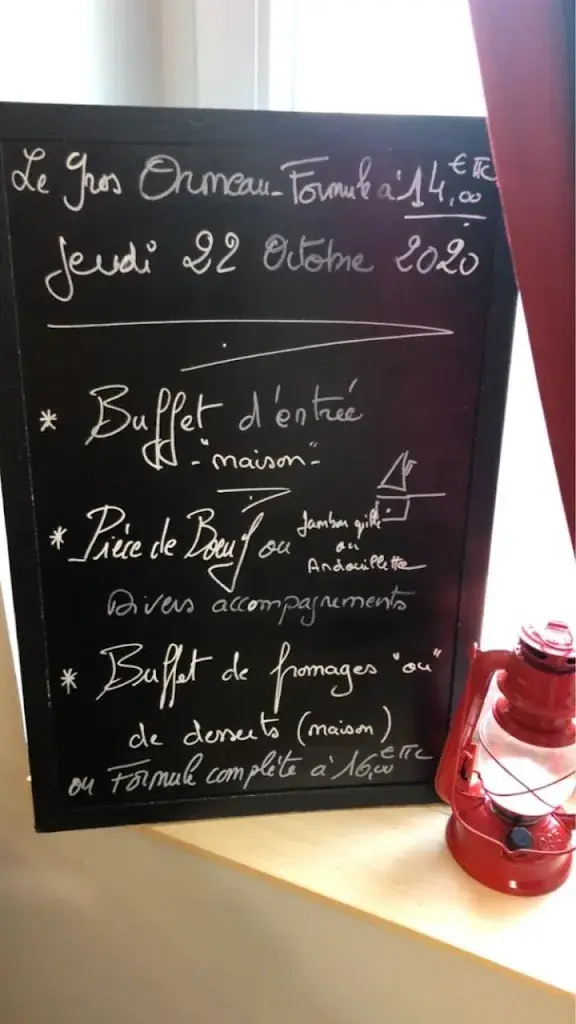 Le Gros Ormeau - Formule à 14,00 € TTC
Jeudi 22 Octobre 2020
* Buffet d'entrée
- "maison" -
* Pièce de Boeuf ou Jambon grillé
ou
Andouillette
Divers accompagnements
* Buffet de fromages "ou"
de desserts (maison)
ou Formule complète à 16,00 € TTC